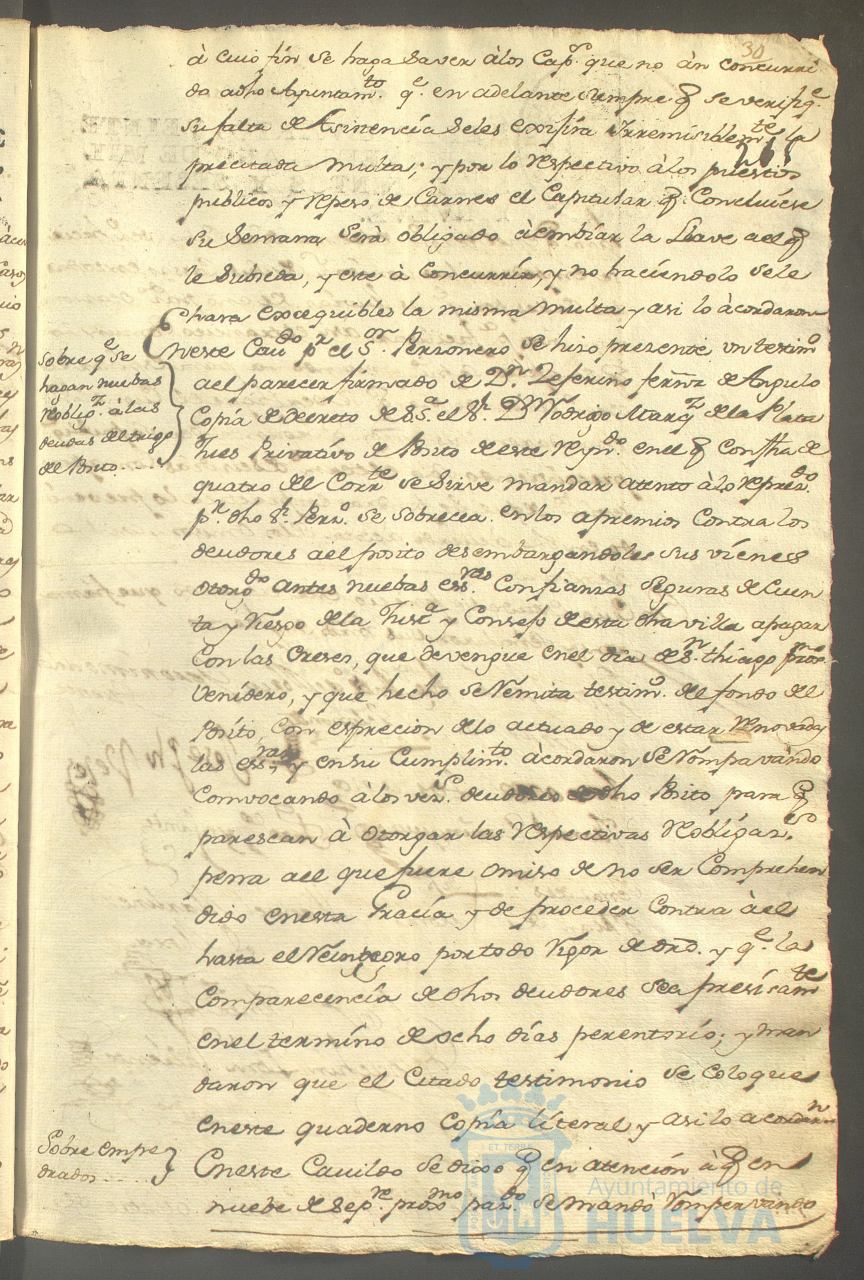 30
à cuio fin se haga saver àlos Caps. que no àn concurri
do adho Ayuntamto. qe. en adelante siempre q se verifiqe.
su falta de Asistencia seles exisira Irremisiblemte la
265
precitada multa; y por lo respectivo àlos puestos
publicos y repeso de Carnes el Capitular q. Concluiese
su semana serà obligado àembiar la Llave ael q
le subseda, y este à Concurrir, y no haciendolo sele
hara exsequibles la misma multa y asi lo àcordaron
Sobre qe se
hagan nuebas
reobligs. à los
deudas del trigo
del Posito....
Eneste Cavdo pr el Sor. Personero se hiso presente un testimo
del parecer firmado de Dn. Zeferino fernz de Angulo
Copia de decreto de SSa. el Sr. Dn Rodrigo Marqz de la Plata
Jues Privativo de Posito de este Reyno. en el q Con fha de
quatro del Corrte se sirve mandar atento àlo represdo.
pr. dho Sr. Perso. se sobrecea en los apremios contra los
deudores ael posito desembargandoles sus vienes
otorgdo antes nuebas essras. Confianzas seguras de cuen
ta y riesgo dela Justa y Consejo de esta dha villa apagar
Con las Creses, que devengue en el dia de Sn. thiago proxo.
Venidero, y que hecho se remita testimo. del fondo del
Posito, con espresion delo actuado y de estar renovadas
las essras, y en su Cumplimto. àcordaron se rompa vando
Convocando àlos vezs. deudores de dho Posito para q
parescan à otorgar las respectivas reobligazs.
pena ael que fuere omiso de no ser Comprehen
dido en esta Gracia y de proceder Contra àel
hasta el Reintegro por todo rigor de dro. y qe. la
Comparecencia de dhos deudores sea presisamte
en el termino de ocho dias perentorio; y man
daron que el Citado testimonio se coloque
en este quaderno Copia literal y asi lo acordaron
Sobre empe
drados....
Eneste Cavildo se dixo q en atencion à q en
nuebe de Sepre. proxmo pasdo. se mandò romper vando
Ayuntamiento de
HUELVA